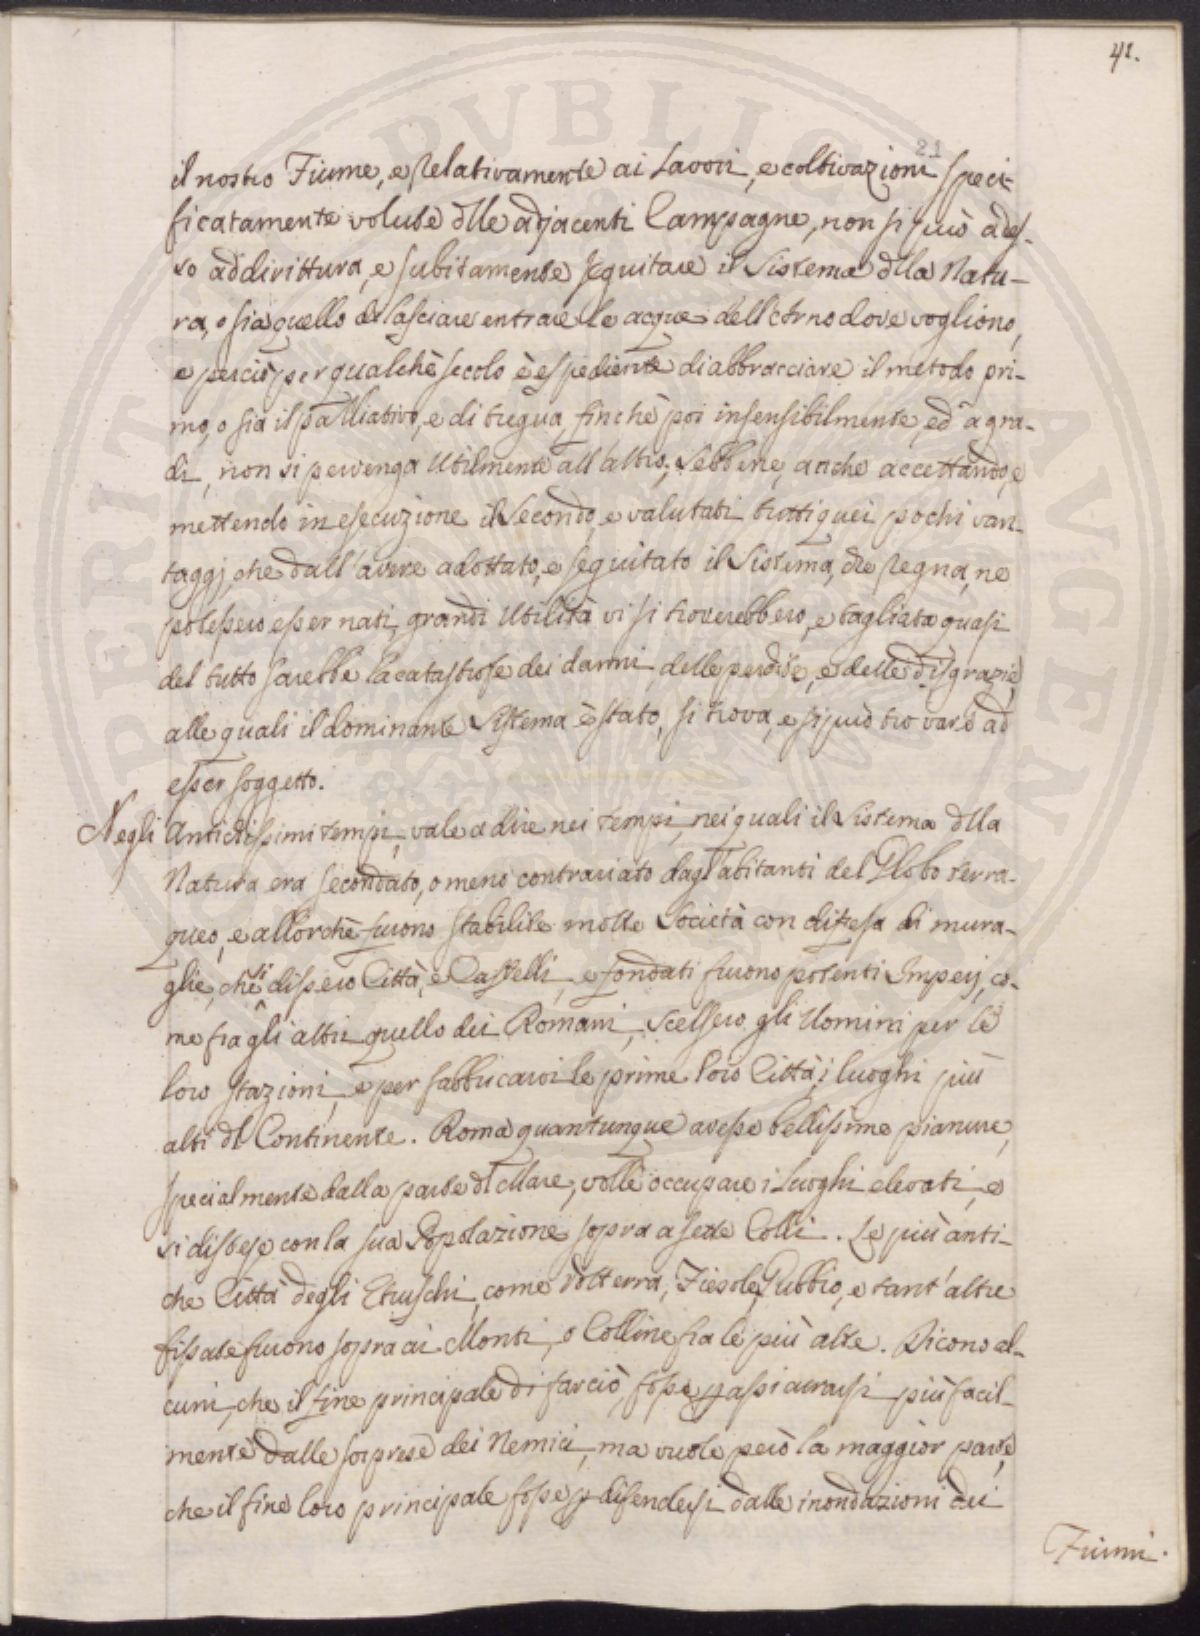 41.
21
il nostro Fiume, e Relativamente ai Lavori, e coltivazioni speci-
ficatamente volute dlle adjacenti Campagne, non si può ades-
so addirittura, e subitamente seguitare il Sistema dlla Natu-
ra, o sia quello di lasciare entrare le acque dell'Arno dove vogliono,
e perciò per qualchè secolo è espediente di abbracciare il metodo pri-
mo, o sia il palliativo, e di tregua, finchè poi insensibilmente, ed a gra-
di, non si pervenga Utilmente all'altro; Sebbene, anche accettando, e
mettendo in esecuzione il Secondo, e valutati tutti quei pochi van-
taggj, che dall'avere adottato, e seguitato il Sistema, che Regna, ne
potessero esser nati, grandi Utilità vi si troverebbero, e tagliata quasi
del tutto sarebbe la catastrofe dei danni, delle perdite, e delle disgrazie,
alle quali il dominante Sistema è stato, si trova, e si può trovare ad
esser soggetto.
Negli Antichissimi tempi, vale a dire nei tempi, nei quali il Sistema dlla
Natura era secondato, o meno contrariato dagl'abitanti del Globo terra-
queo, e allorchè furono stabilite molte Società con difesa di mura-
glie, che si dissero Città, e Castelli, e fondati furono potenti Imperj, co-
me fra gli altri quello dei Romani, scelsero gli Uomini per le
loro stazioni, e per fabbricarvi le prime loro Città, i luoghi più
alti dl Continente. Roma quantunque avesse bellissime pianure,
specialmente dalla parte dl Mare, volle occupare i Luoghi elevati, e
si distese con la sua Popolazione sopra a sette Colli. Le più anti-
che Città degli Etruschi, come Volterra, Fiesole, Gubbio, e tant'altre
fissate furono sopra ai Monti, o Colline fra le più alte. Dicono al-
cuni, che il fine principale di far ciò, fosse p assicurarsi più facil-
mente dalle sorprese dei Nemici, ma vuole però la maggior parte,
che il fine loro principale fosse p difendersi dalle inondazioni dei
Fiumi.
PVBLIC
PERITAT
AVGEN